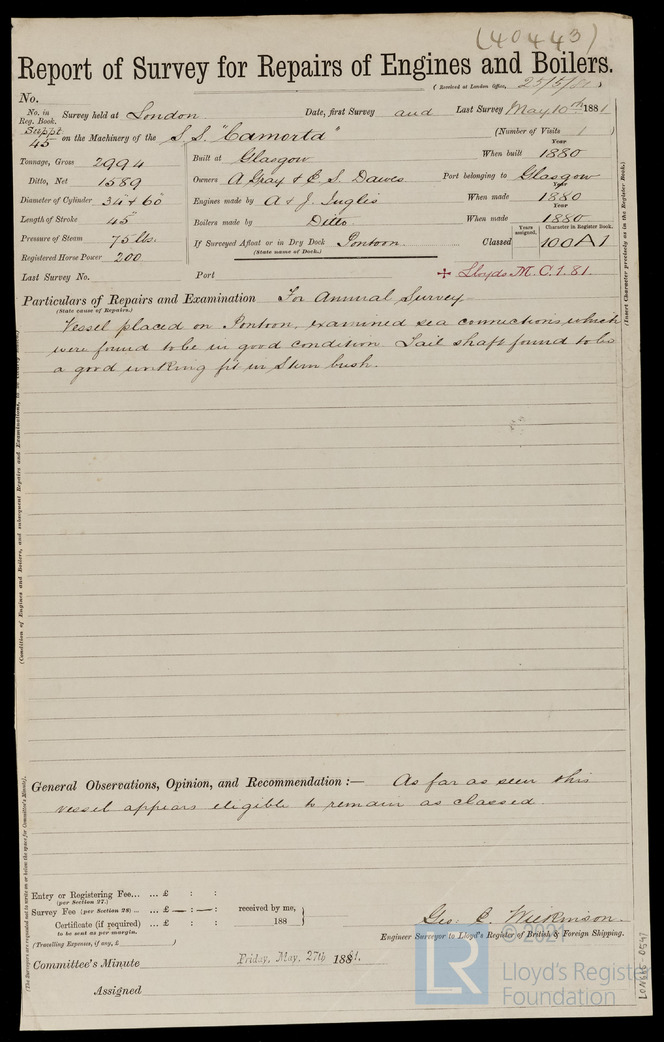 (40443)
Report of Survey for Repairs of Engines and Boilers.
(Received at London Office, 25/5/81)
No.
No. in Reg. Book. Survey held at London Date, first Survey and Last Survey May 10th 1881
Suppt 45 on the Machinery of the S.S. "Camorta" (Number of Visits 1)
Tonnage, Gross 2994 Built at Glasgow When built Year 1880
Ditto, Net 1589 Owners A Gray & E. S. Dawes Port belonging to Glasgow
Diameter of Cylinder 34 & 60 Engines made by A & J. Inglis When made Year 1880
Length of Stroke 45 Boilers made by Ditto When made Year 1880
Pressure of Steam 75 lbs. If Surveyed Afloat or in Dry Dock Pontoon. (State name of Dock.) Classed Years assigned. Character in Register Book. 100A1
Registered Horse Power 200
Last Survey No. Port Lloyds M.C. 1. 81.
Particulars of Repairs and Examination For Annual Survey
(State cause of Repairs.)
Vessel placed on Pontoon, examined sea connections which
were found to be in good condition Tail shaft found to be
a good working fit in Stern bush.
(Condition of Engines and Boilers, and subsequent Repairs and Examinations,
(Insert Character precisely as in the Register Book.)
General Observations, Opinion, and Recommendation :— As far as seen this
vessel appears eligible to remain as classed.
(The Surveyors are requested not to write on or below the space for Committee's Minute).
Entry or Registering Fee... ... £ : :
(per Section 27.)
Survey Fee (per Section 28) ... ... £ — : — : received by me,
Certificate (if required) ... £ : : 188
to be sent as per margin.
(Travelling Expenses, if any, £ )
Geo. C. Wilkinson.
Engineer Surveyor to Lloyd's Register of British & Foreign Shipping.
Committee's Minute Friday, May, 27th 1881.
Assigned
© 2021
LR
Lloyd's Register
Foundation
LON616-0547